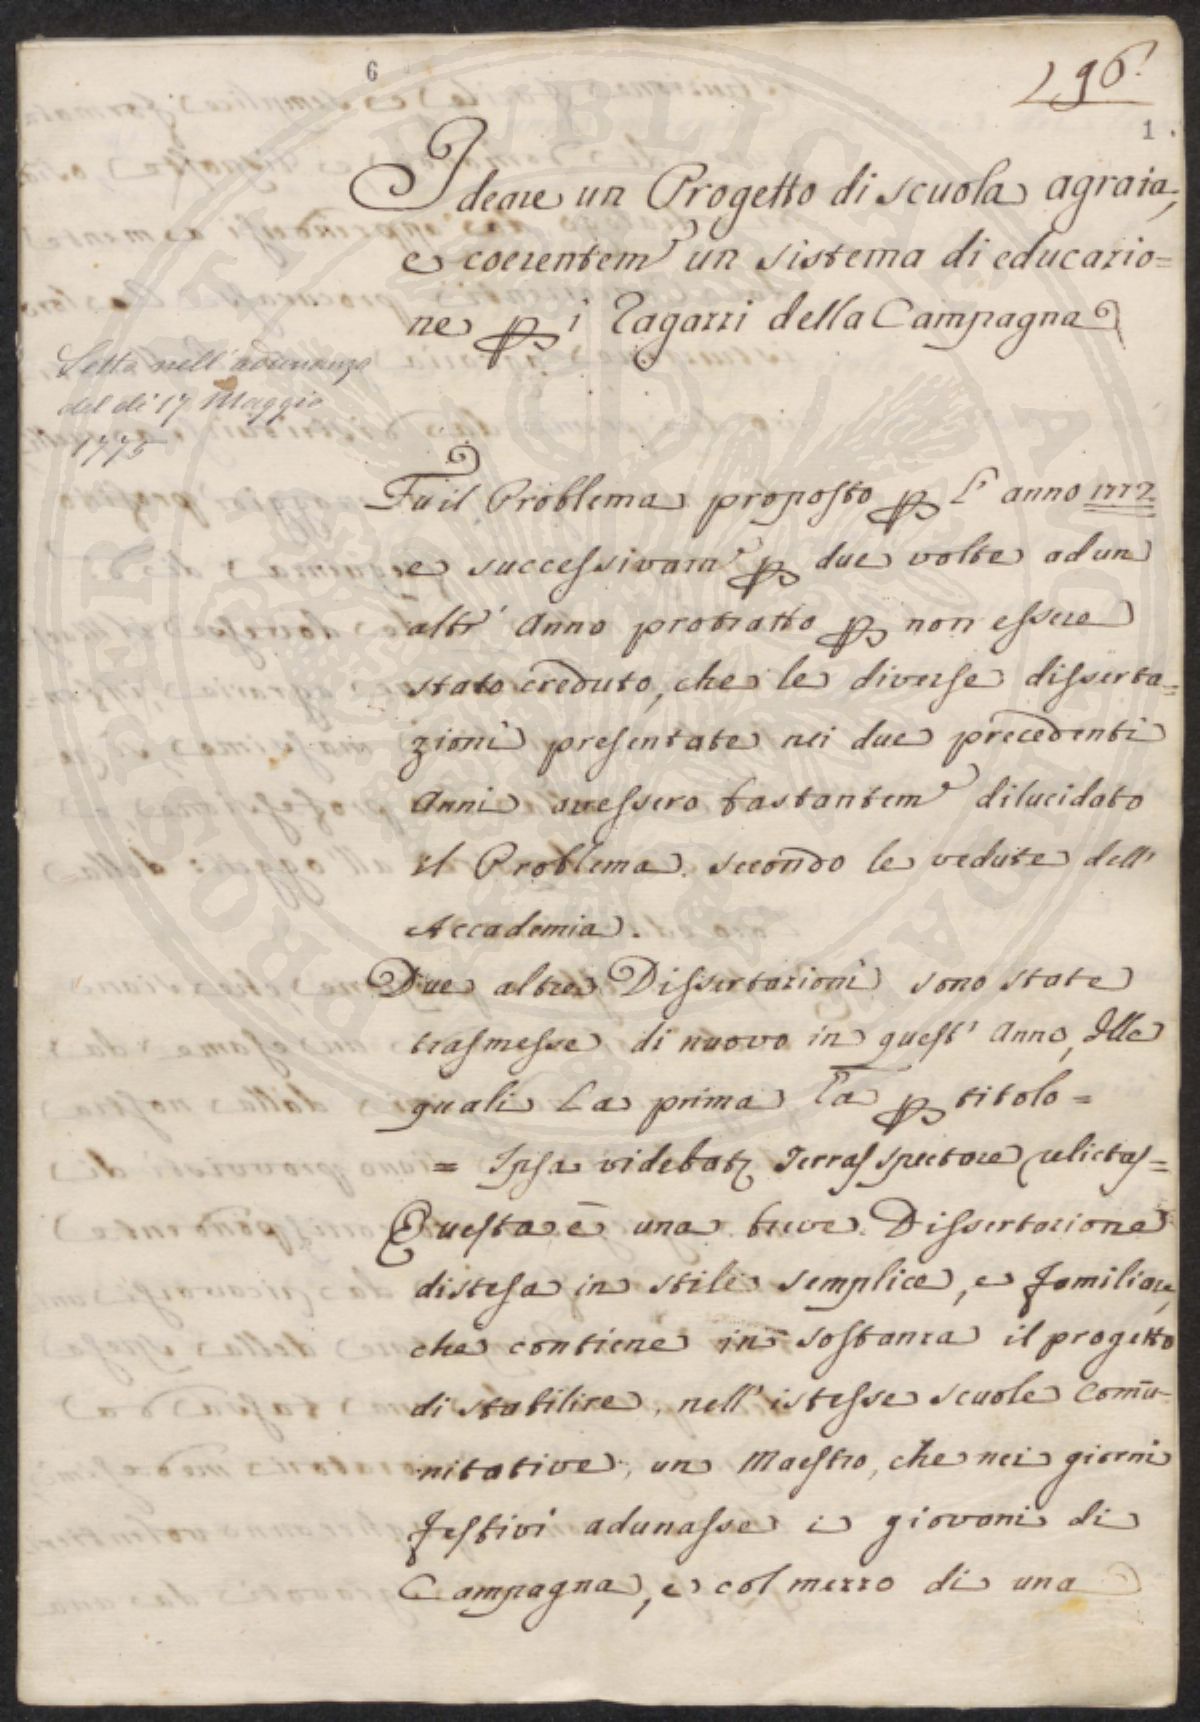 6
296.
1.
Ideare un Progetto di scuola agraria,
e coerentem.e un sistema di educazio=
ne p i Ragazzi della Campagna
Letta nell'adunanza
del dì 17 Maggio
1775
Fu il Problema proposto p l' anno 1772
e successivam.e p due volte ad un
altr' Anno protratto p non essere
stato creduto, che le diverse disserta=
zioni presentate nei due precedenti
Anni avessero bastantem.e dilucidato
il Problema secondo le vedute dell'
Accademia.
Due altre Dissertazioni sono state
trasmesse di nuovo in quest' Anno, delle
quali La prima ha p titolo =
= Ipsa videbat terras spectare relictas =
Questa è una breve Dissertazione
distesa in stile semplice, e familiare,
che contiene in sostanza il progetto
di stabilire, nell' istesse scuole Comu-
nitative, un Maestro, che nei giorni
festivi adunasse i giovani di
Campagna, e col mezzo di una
PROSPERITATI PUBLICAE AUGENDAE